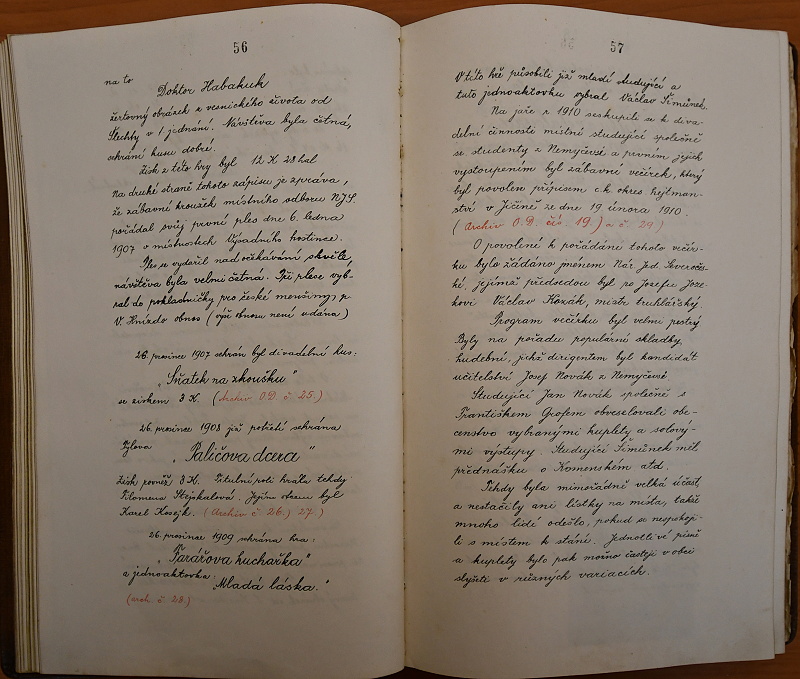 56
na to
Doktor Habakuk
žertovný obrázek z vesnického života od
Šlechty v 1 jednání. Návštěva byla četná,
sehrání kusu dobré.
Zisk z této hry byl 12 K 28 hal
Na druhé straně tohoto zápisu je zpráva,
že zábavní kroužek místního odboru N.J.S.
pořádal svůj první ples dne 6. ledna
1907 v místnostech Výsadního hostince.
Ples se vydařil nad očekávání skvěle,
návštěva byla velmi četná. Při plese vyb-
ral do pokladničky pro české menšiny p.
V. Hnízdo obnos (výše obnosu není udána)
26. prosince 1907 sehrán byl divadelní kus:
„Sňatek na zkoušku"
se ziskem 3 K. (Archiv O.D. č. 25.)
26. prosince 1908 již potřetí sehrána
Tylova
„Paličova dcera"
Zisk poněž. 3 K. Titulní roli hrála tehdy
Filomena Stejskalová. Jejím otcem byl
Karel Kosejk. (Archiv č 26.) 27.)
26. prosince 1909 sehrána hra:
„Farářova kuchařka"
a jednoaktovka:
„Mladá láska."
(arch. č. 28.)
57
V této hře působili již mladí studující a
tuto jednoaktovku vybral Václav Šimůnek.
Na jaře r. 1910 seskupili se k diva-
delní činnosti místní studující společně
se studenty z Nemyčevsi a prvním jejich
vystoupením byl zábavní večírek, který
byl povolen přípisem c.k. okres. hejtman-
ství v Jičíně ze dne 19 února 1910.
(Archiv O.D. čís. 19.) a č. 29.)
O povolení k pořádání tohoto večír-
ku bylo žádáno jménem Nár. Jed. Severočes-
ké, jejímž předsedou byl po Josefu Joze-
kovi Václav Kozák, mistr truhlářský.
Program večírku byl velmi pestrý
Byly na pořadu populární skladby
hudební, jichž dirigentem byl kandidát
učitelství Josef Novák z Nemyčevsi
Studující Jan Novák společně s
Františkem Grofem obveselovali obe-
censtvo vybranými kuplety a solový-
mi výstupy. Studující Šimůnek měl
přednášku o Komenském atd.
Tehdy byla mimořádně velká účast
a nestačily ani lístky na místa, takže
mnoho lidí odešlo, pokud se nespokoji-
li s místem k stání. Jednotlivé písně
a kuplety bylo pak možno častěji v obci
slyšeti v různých variacích.